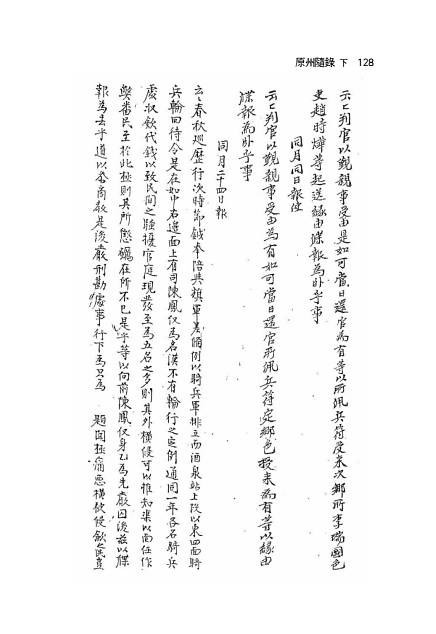 原州隨錄 下 128
云云判官以觀親事受由是如可當日還官爲有等以所佩兵符受來次鄕所李瑞圖色
吏趙時燁等起送緣由牒報爲臥乎事
同月同日報使
云云判官以觀親事受由爲有如可當日還官所佩兵符定鄕色授來爲有等以緣由
牒報爲臥乎事
同月二十四日報
云云春秋巡歷行次時節鉞奉陪共鎭軍差備例以騎兵軍排立而酒泉站上段以東四面騎
兵輪回待令是在如中右邊面上有司陳鳳仅爲名漢不有輪行之定例通同一年各名騎兵
處收斂代錢以致民間之騷擾官庭現發至爲五名之多則其外橫侵可以推知渠以面任作
弊民生於此極則其所懲礪在所不已是乎等以向前陳鳳仅身乙爲先嚴囚後玆以牒
報爲去乎道以參商敎是後嚴刑勘處事行下爲只爲 題囚極痛惡橫斂侵